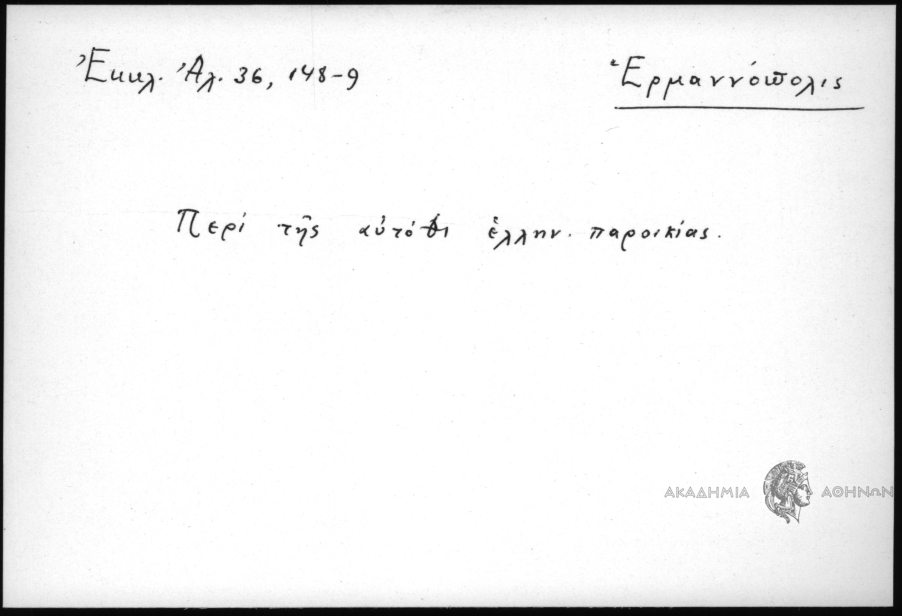 Ἐκκλ. Ἀλ. 36, 148-9
Ἑρμαννόπολις
Περὶ τῆς αὐτόθι ἑλλην. παροικίας.
ΑΚΑΔΗΜΙΑ ΑΘΗΝΩΝ